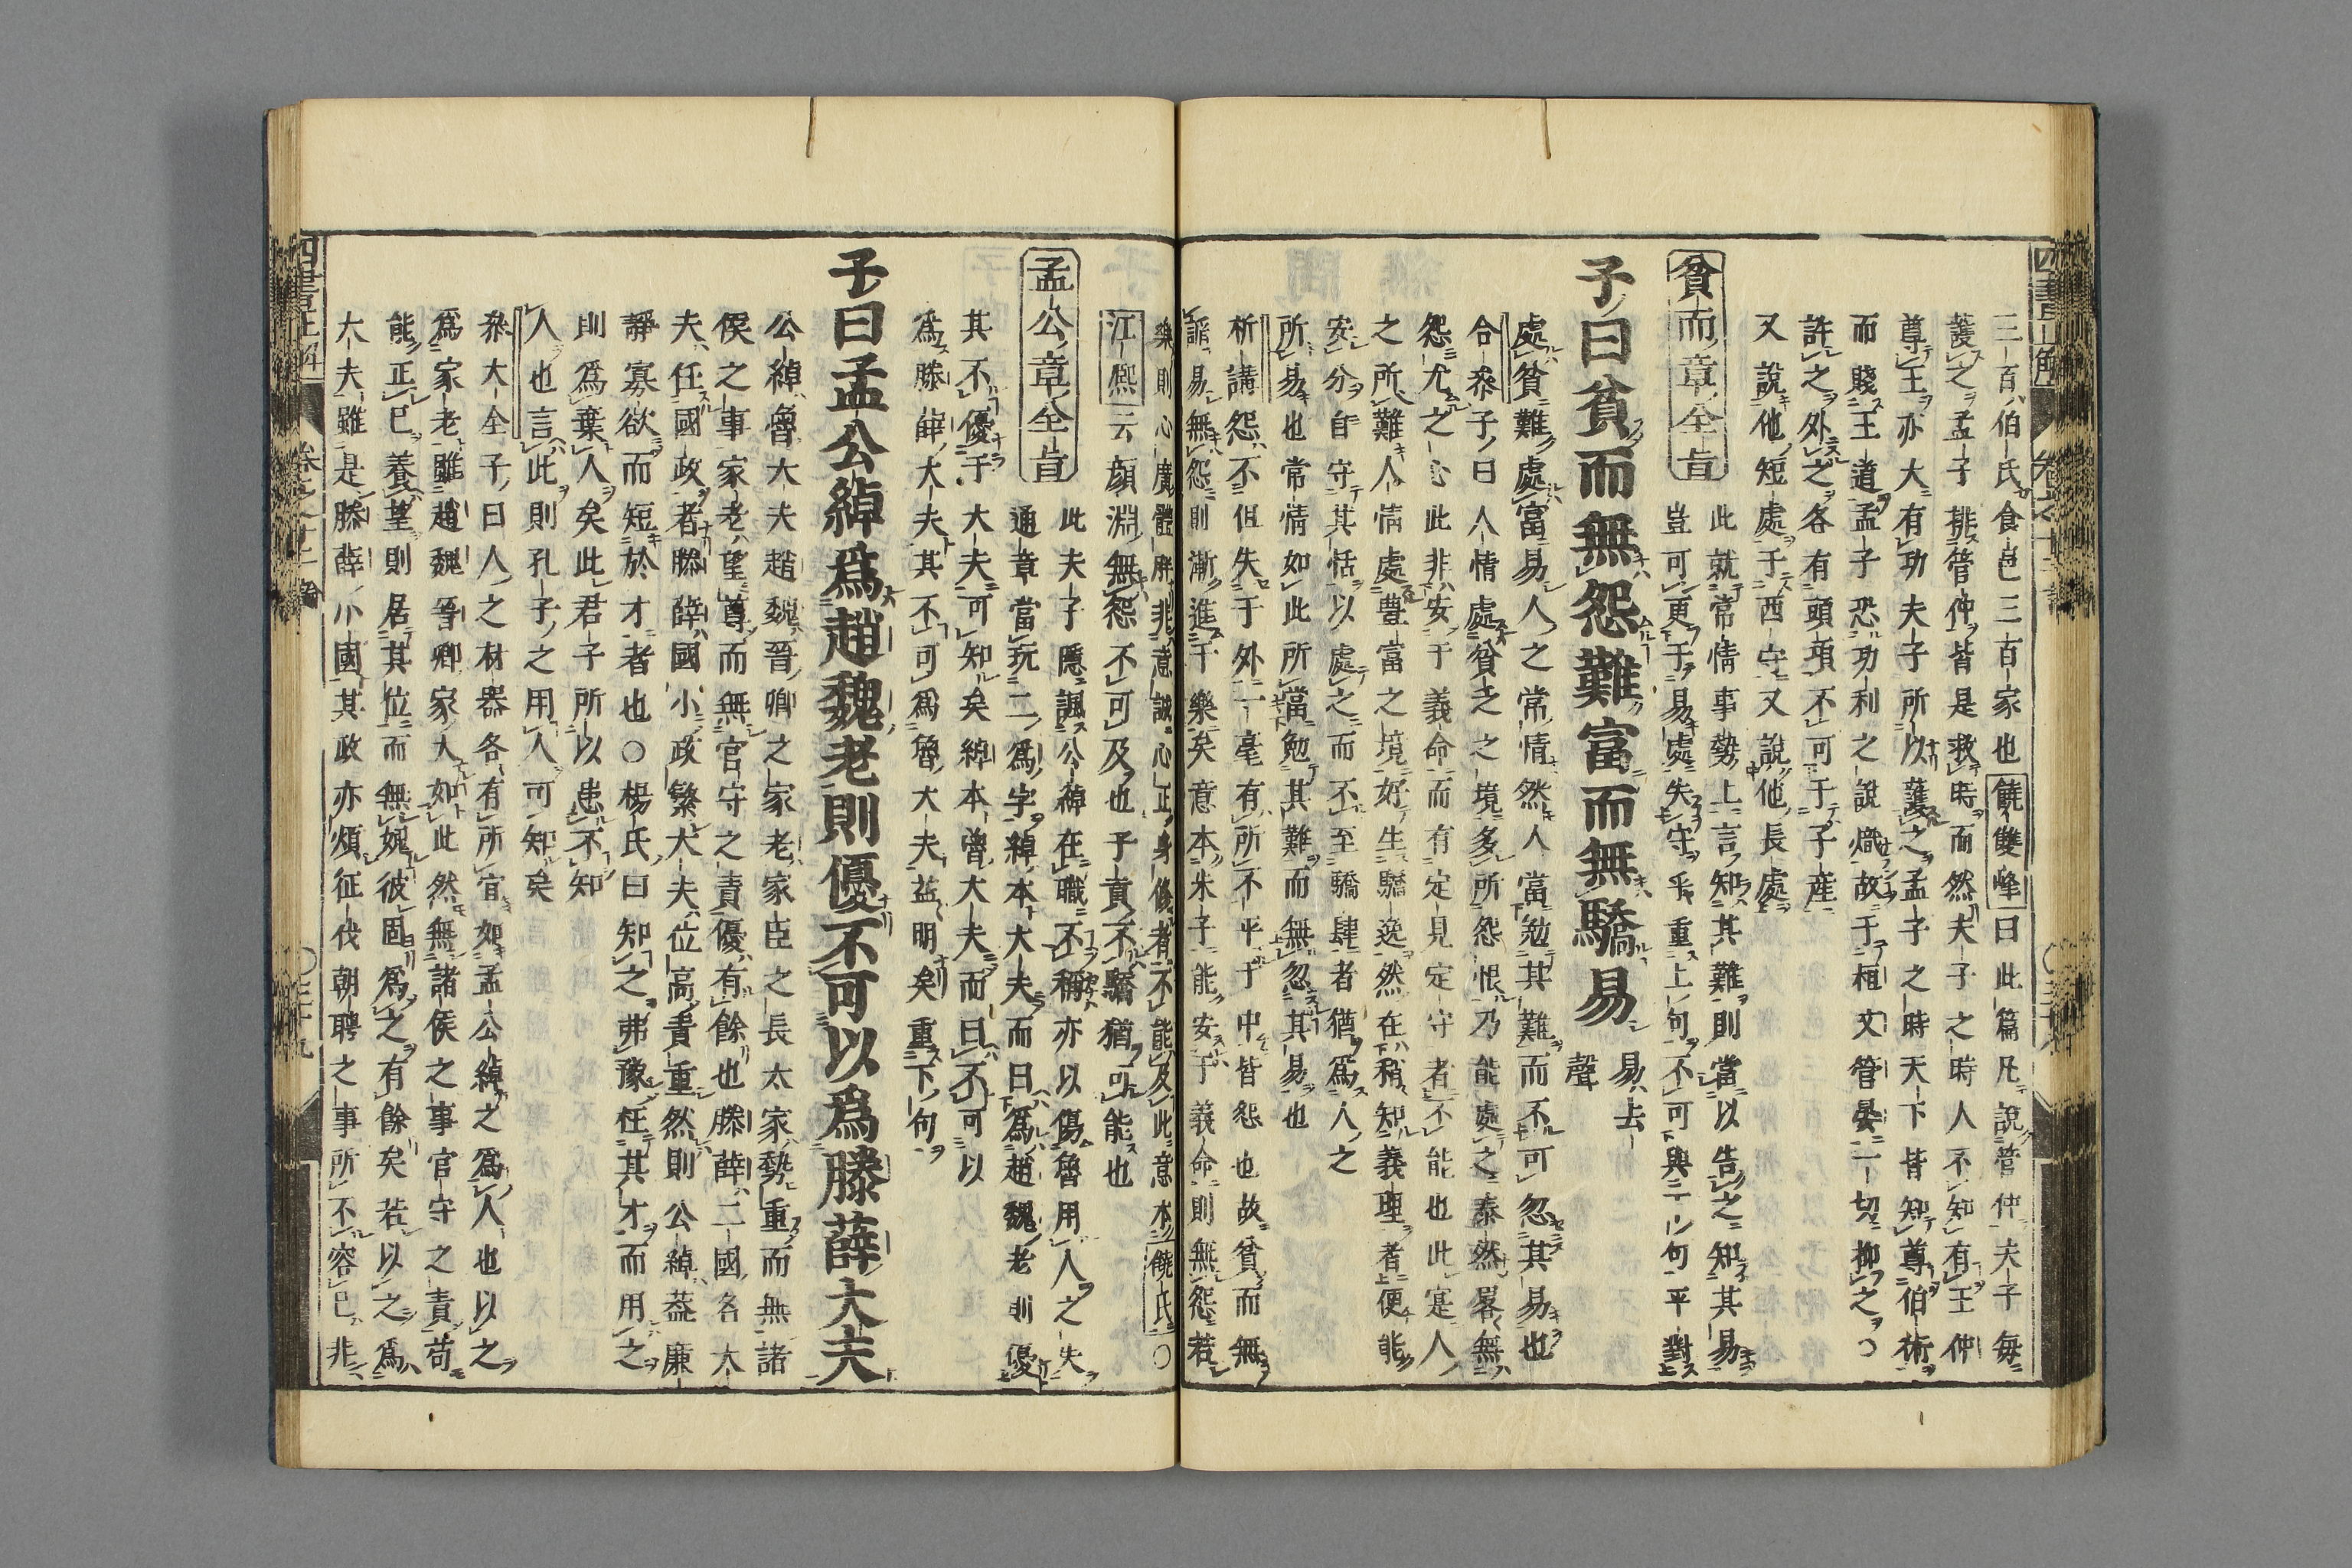 三百伯氏食邑三百家也饒雙峰曰此篇凡說管仲夫子每
護之孟子排管仲皆是救時而然夫子之時人不知有王仲
尊王亦大有功夫子所以護之孟子之時天下皆知尊伯術
而賤王道孟子恐功利之說熾故于桓文管晏一切抑之○
許之外之各有頭項不可于子産
又說他短處于西守又說他長處
貧而章全旨
此就常情事勢上言知其難則當以告之知其易
豈可更于易處失守乎重上句不可與二句平對
子曰貧而無怨難富而無驕易
易去
聲
處貧難處富易人之常情然人當勉其難而不可忽其易也
合叅子曰人情處貧之之境多所怨恨乃能處之泰然畧無
怨尤之心此非安于義命而有定見定守者不能也此寔人
之所難人情處豊富之境好生驕逸然在稍知義理者便能
安分自守其恬以處之而不至驕肆者猶爲人之
所易也常情如此所當勉其難而無忽其易也
析講怨不但失于外一毫有所不平于中皆怨也故貧而無
謟易無怨則漸進于樂矣意本朱子能安于義命則無怨若
樂則心廣體胖非意誠心正身修者不能及此意本饒氏○
江熙云顏淵無怨不可及也子貢不驕猶可能也
孟公章全旨
此夫子隱諷公綽在職不稱亦以傷魯用人之失
通章當玩二爲字綽本大夫而曰爲趙魏老則優
其不優于大夫可知矣綽本魯大夫而曰不可以
爲滕薛大夫其不可爲魯大夫益明矣重下句
子曰孟公綽爲趙魏老則優不可以爲滕薛大夫
公綽魯大夫趙魏晉卿之家老家臣之長大家勢重而無諸
侯之事家老望尊而無官守之責優有餘也滕薛二國名大
夫任國政者滕薛國小政繁大夫位高責重然則公綽葢廉
靜寡欲而短於才者也○楊氏曰知之弗豫枉其才而用之
則爲棄人矣此君子所以患不知
人也言此則孔子之用人可知矣
叅大全子曰人之材器各有所宜如孟公綽之爲人也以之
爲家老雖趙魏晉卿家大如此然無諸侯之事官守之責苟
能正己養望則居其位而無媿彼固爲之有餘矣若以之爲
大夫雖是滕薛小國其政亦煩征伐朝聘之事所不容已非